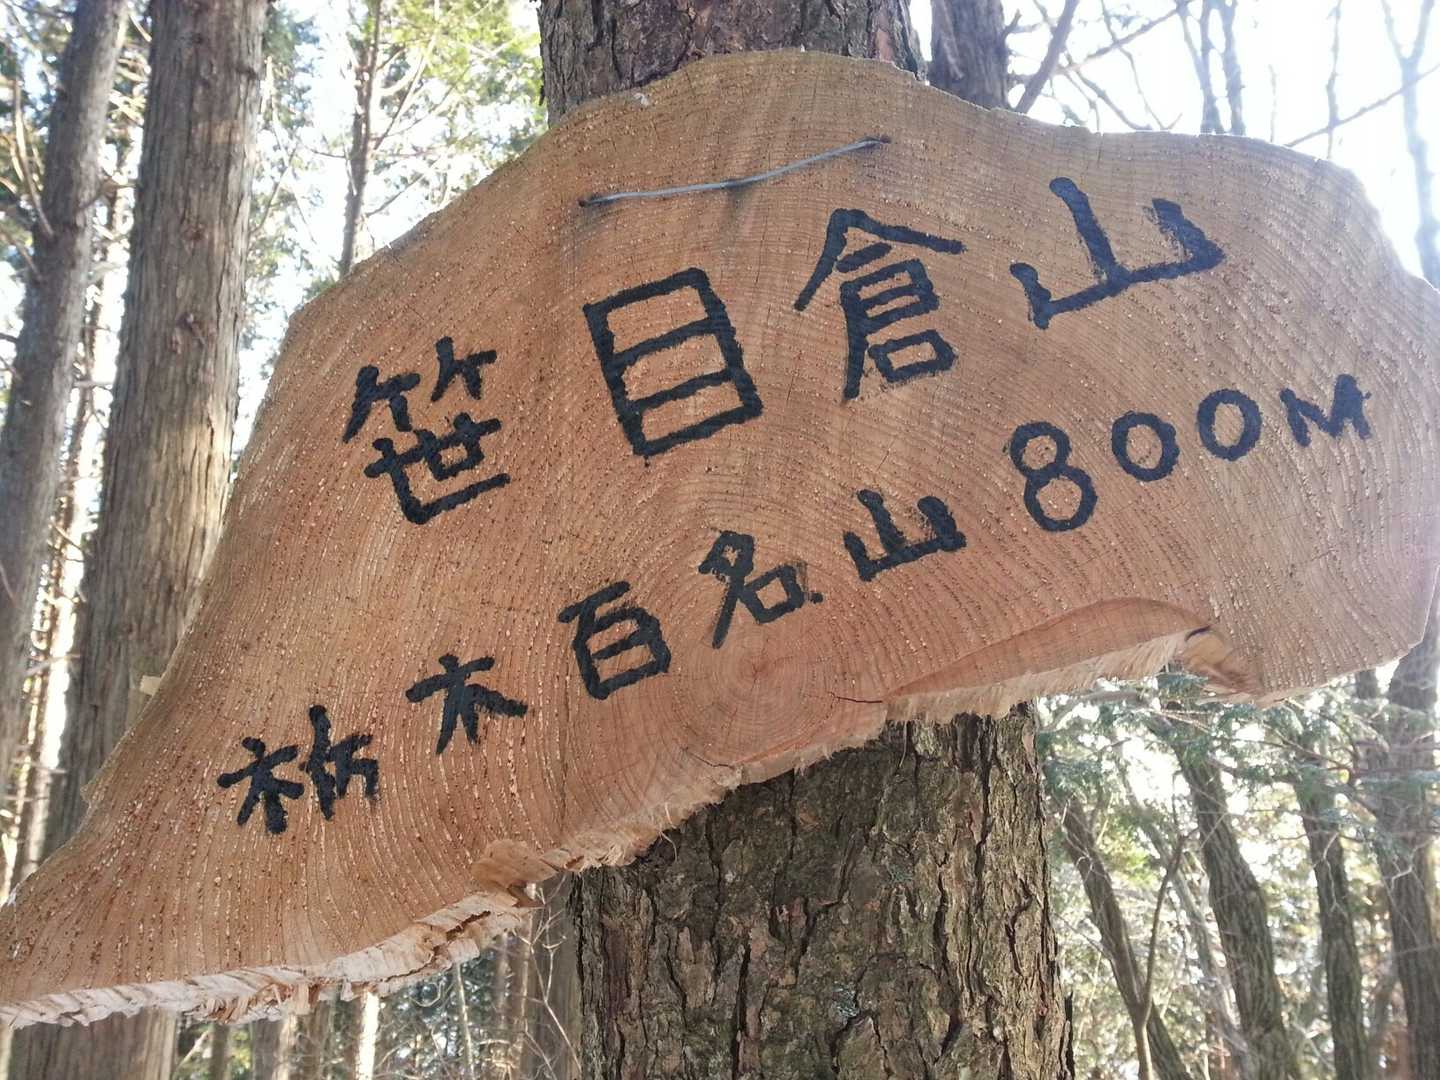 笹目倉山
栃木百名山 800M